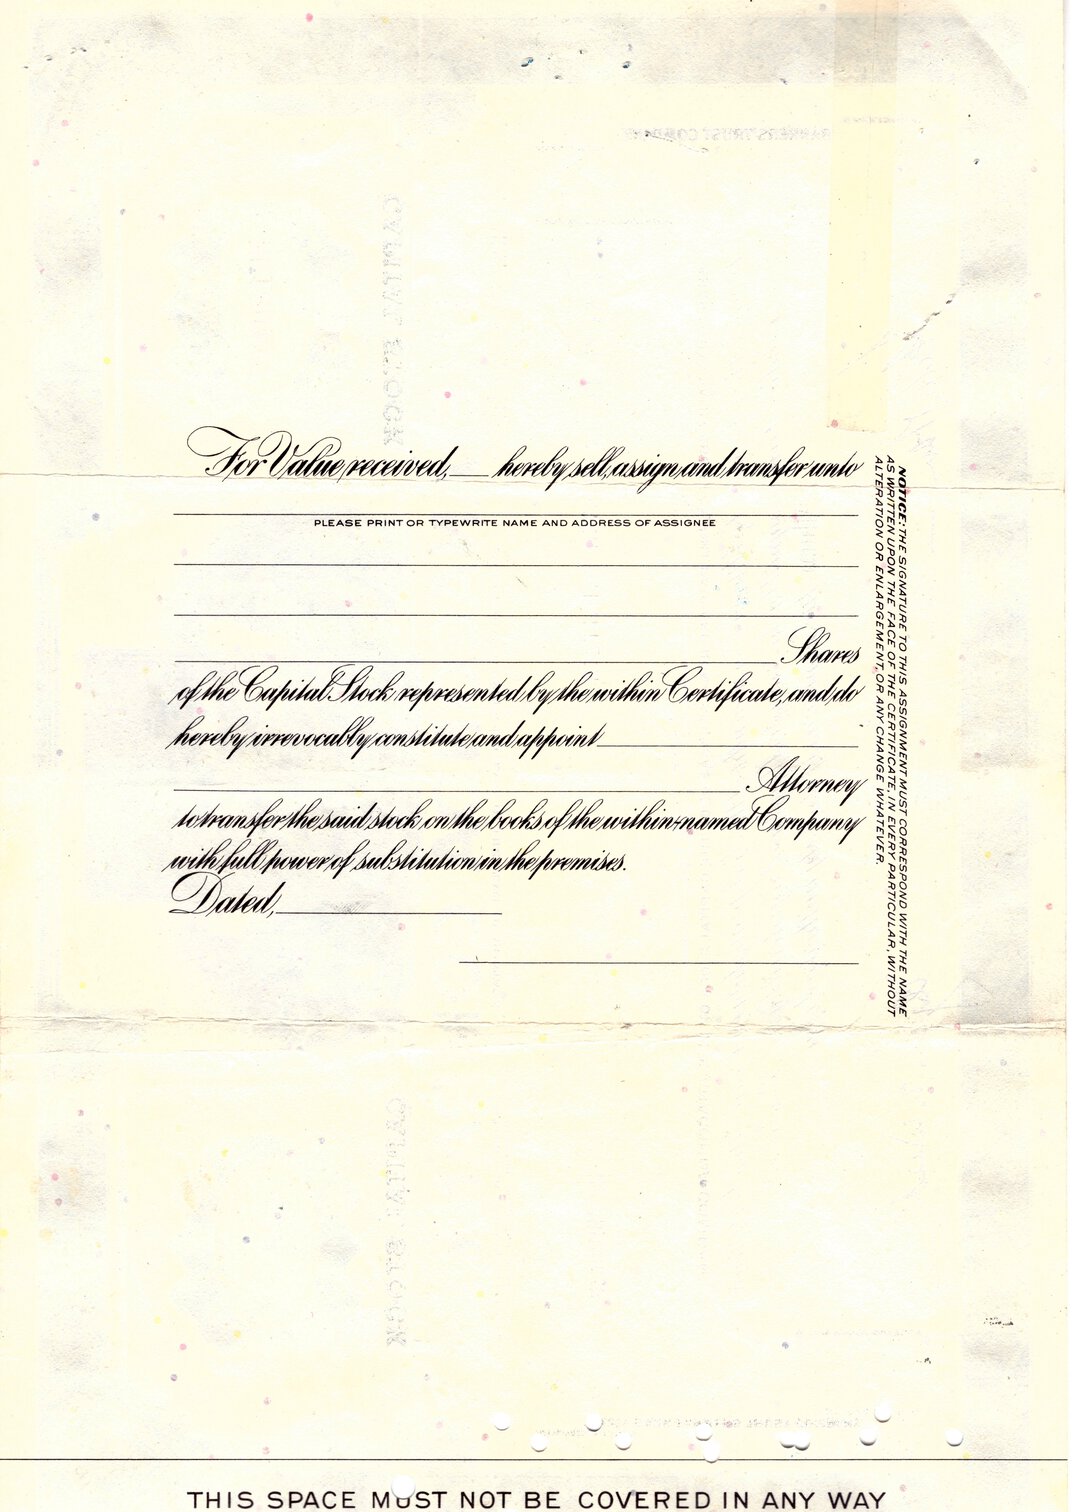 For Value received, ____ hereby sell, assign and transfer unto
PLEASE PRINT OR TYPEWRITE NAME AND ADDRESS OF ASSIGNEE
Shares
of the Capital Stock represented by the within Certificate, and do
hereby irrevocably constitute and appoint
Attorney
to transfer the said stock on the books of the within-named Company
with full power of substitution in the premises.
Dated,
NOTICE: THE SIGNATURE TO THIS ASSIGNMENT MUST CORRESPOND WITH THE NAME
AS WRITTEN UPON THE FACE OF THE CERTIFICATE, IN EVERY PARTICULAR, WITHOUT
ALTERATION OR ENLARGEMENT, OR ANY CHANGE WHATEVER.
THIS SPACE MUST NOT BE COVERED IN ANY WAY